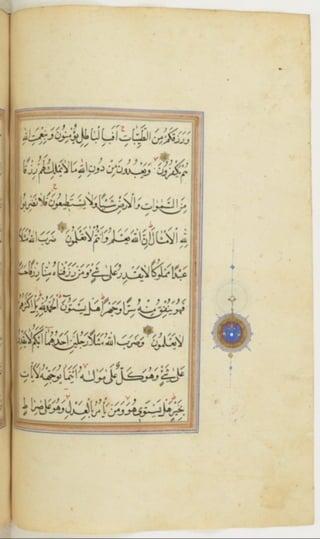 وَرَزَقَكُمْ مِنَ الطَّيِّبَاتِ أَفَبِالْبَاطِلِ يُؤْمِنُونَ وَبِنِعْمَتِ اللَّهِ
هُمْ يَكْفُرُونَ وَيَعْبُدُونَ مِنْ دُونِ اللَّهِ مَا لَا يَمْلِكُ لَهُمْ رِزْقًا
مِنَ السَّمَوَاتِ وَالْأَرْضِ شَيْئًا وَلَا يَسْتَطِيعُونَ فَلَا تَضْرِبُوا
لِلَّهِ الْأَمْثَالَ إِنَّ اللَّهَ يَعْلَمُ وَأَنْتُمْ لَا تَعْلَمُونَ ضَرَبَ اللَّهُ مَثَلًا
عَبْدًا مَمْلُوكًا لَا يَقْدِرُ عَلَى شَيْءٍ وَمَنْ رَزَقْنَاهُ مِنَّا رِزْقًا حَسَنًا
فَهُوَ يُنْفِقُ مِنْهُ سِرًّا وَجَهْرًا هَلْ يَسْتَوُونَ الْحَمْدُ لِلَّهِ بَلْ أَكْثَرُهُمْ
لَا يَعْلَمُونَ وَضَرَبَ اللَّهُ مَثَلًا رَجُلَيْنِ أَحَدُهُمَا أَبْكَمُ لَا يَقْدِرُ
عَلَى شَيْءٍ وَهُوَ كَلٌّ عَلَى مَوْلَاهُ أَيْنَمَا يُوَجِّهْهُ لَا يَأْتِ
بِخَيْرٍ هَلْ يَسْتَوِي هُوَ وَمَنْ يَأْمُرُ بِالْعَدْلِ وَهُوَ عَلَى صِرَاطٍ